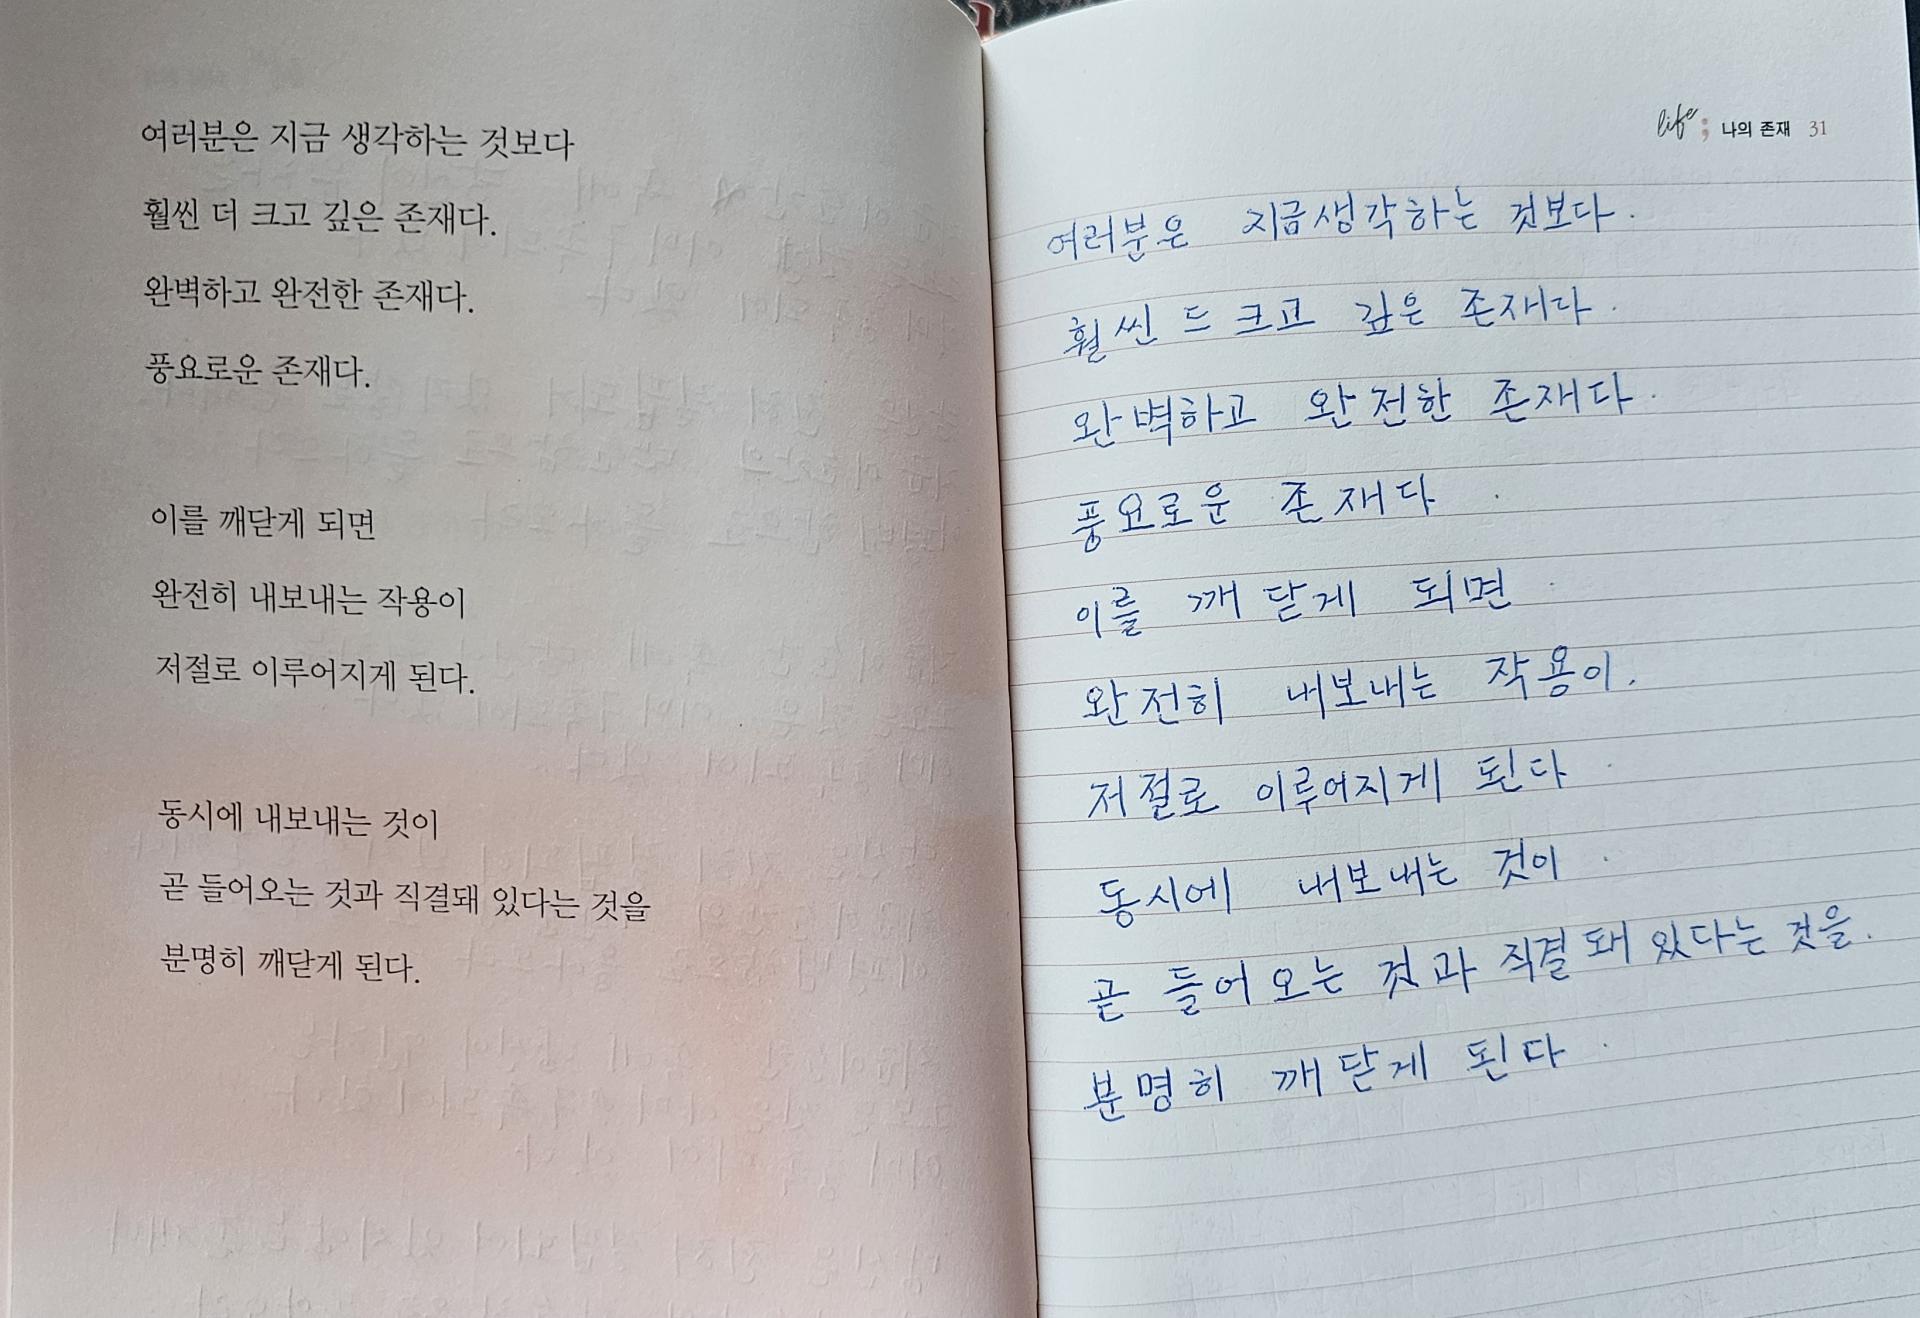 여러분은 지금 생각하는 것보다
훨씬 더 크고 깊은 존재다.
완벽하고 완전한 존재다.
풍요로운 존재다.
이를 깨닫게 되면
완전히 내보내는 작용이
저절로 이루어지게 된다.
동시에 내보내는 것이
곧 들어오는 것과 직결돼 있다는 것을
분명히 깨닫게 된다.
life; 나의 존재 31
여러분은 지금생각하는 것보다.
훨씬 드 크고 깊은 존재다.
완벽하고 완전한 존재다.
풍요로운 존재다.
이를 깨닫게 되면.
완전히 내보내는 작용이.
저절로 이루어지게 된다.
동시에 내보내는 것이.
곧 들어오는 것과 직결돼 있다는 것을.
분명히 깨닫게 된다.